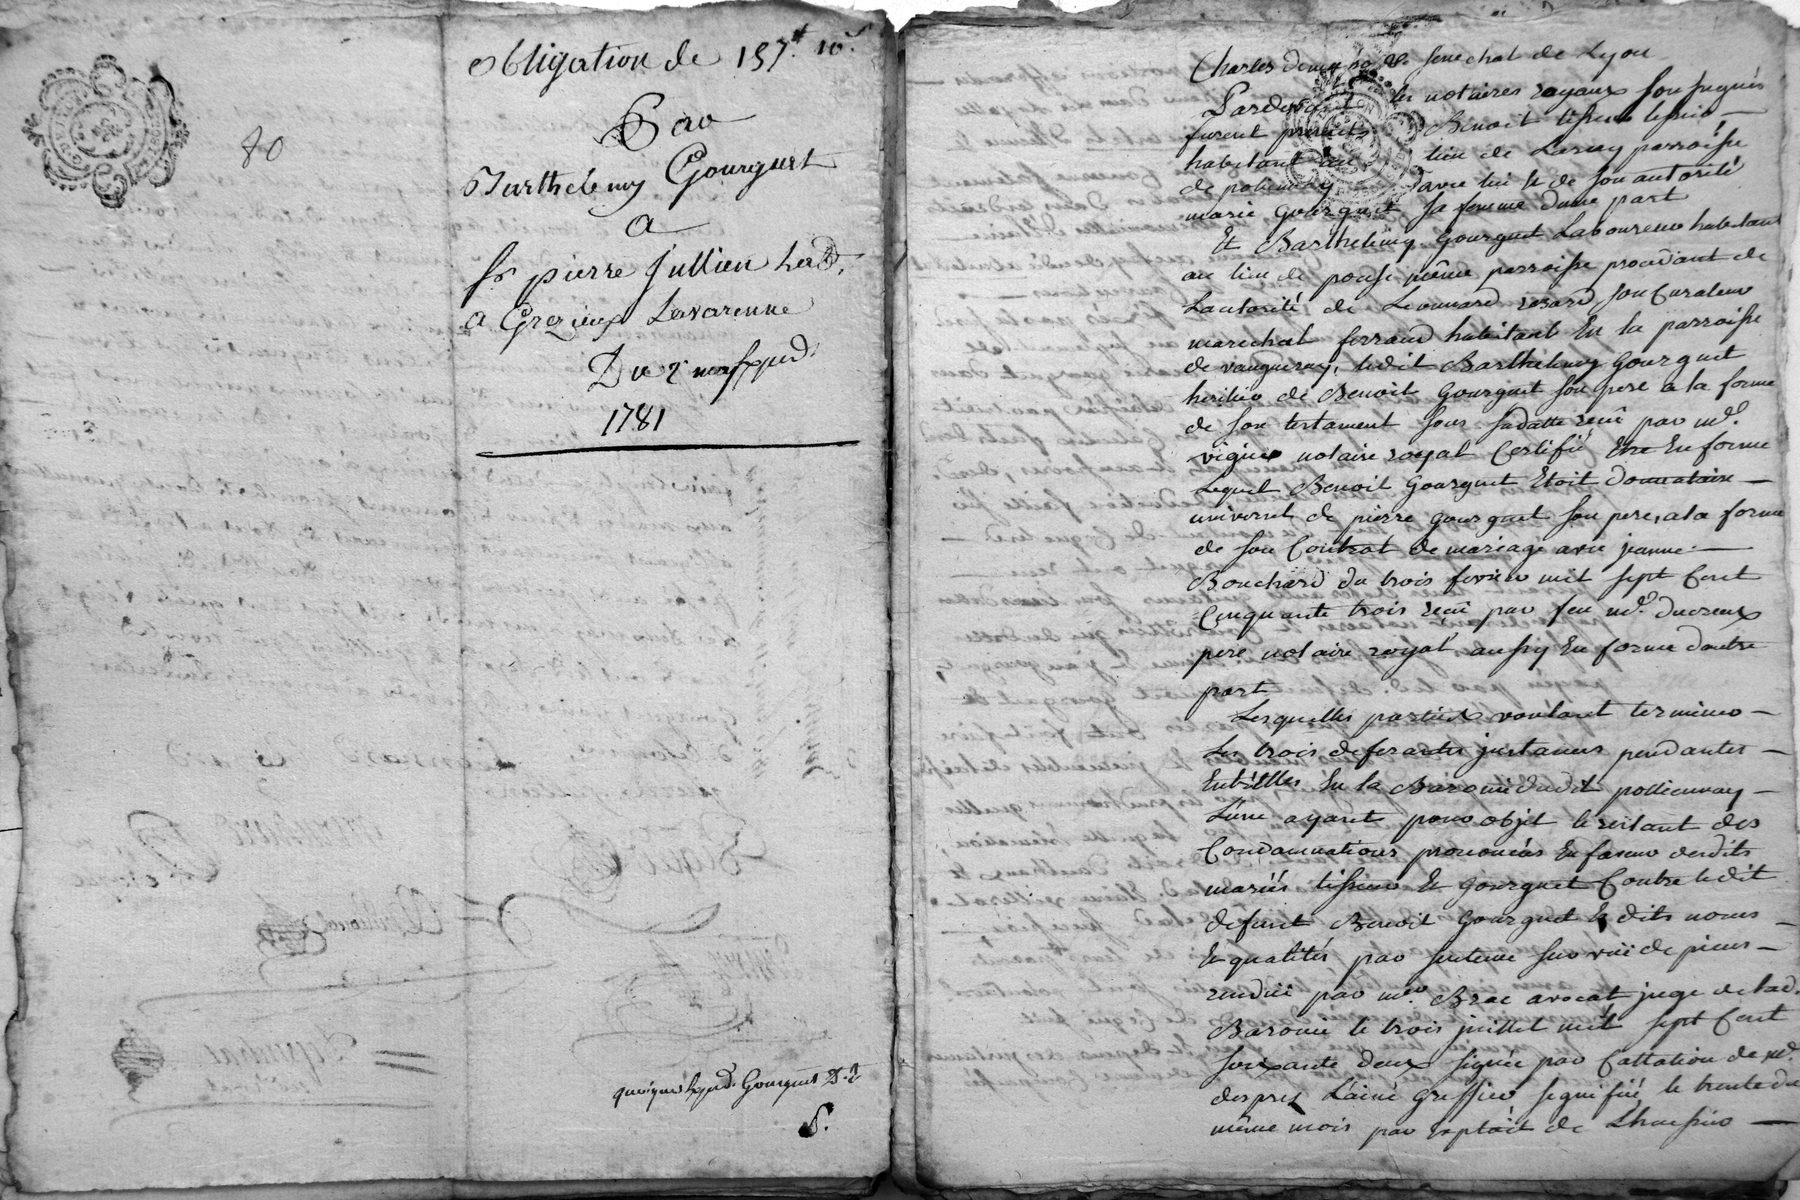 80
obligation de 157# 10s
Par
Barthelemy Gourguet
A
Sr pierre Jullien
a Grezieux Lavarenne
Du 2
1781
Gourguet
Charles senechal de Lyon
Pardevant les notaires royaux soussignés
furent presents Benoit tisseur
habitant au lieu de Larny parroisse
de polienay avec lui & de son autorité
marie Gourguet sa femme dune part
Et Barthelemy Gourguet Laboureur habitant
au lieu de même parroisse procedant de
Lautorité de Leonnard rozard son Curateur
marechal ferrand habitant En la parroisse
de vaugneray, ledit Barthelemy Gourguet
heritier de Benoit Gourguet son pere a la forme
de son testament sous sadatte reçu par me.
vigier notaire royal Certifié Etre En forme
Lequel Benoit Gourguet Etoit donnataire
universel de pierre Gourguet son pere, ala forme
de son Contrat de mariage avec jeanne
Bouchard du trois fevrier mil sept Cent
Cinquante trois reçu par feu me. ducreux
pere notaire royal aussy En forme dautre
part
Lesquelles parties voulant terminer
Les trois differantes instances pendantes
Entrelles En la Baronie dudit pollienay
Lune ayant pour objet le restant des
Condamnations prononcées En faveur desdits
mariés tisseur Et Gourguet Contre ledit
defunt Benoit Gourguet dits noms
Et qualités par sentence sur vuë de pieces
rendue par me. Brac avocat juge de lad.
Baronie le trois juillet mil sept Cent
soixante deux signée par Collation de me.
despres L'ainé Greffier signifiée le trente du
même mois par exploit de Lhuissier